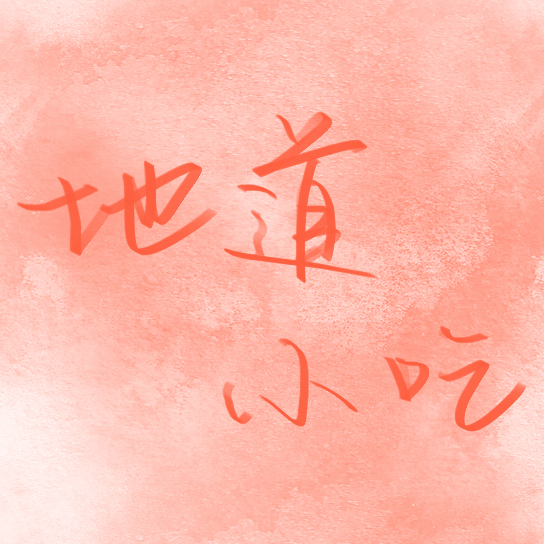 地道
小吃